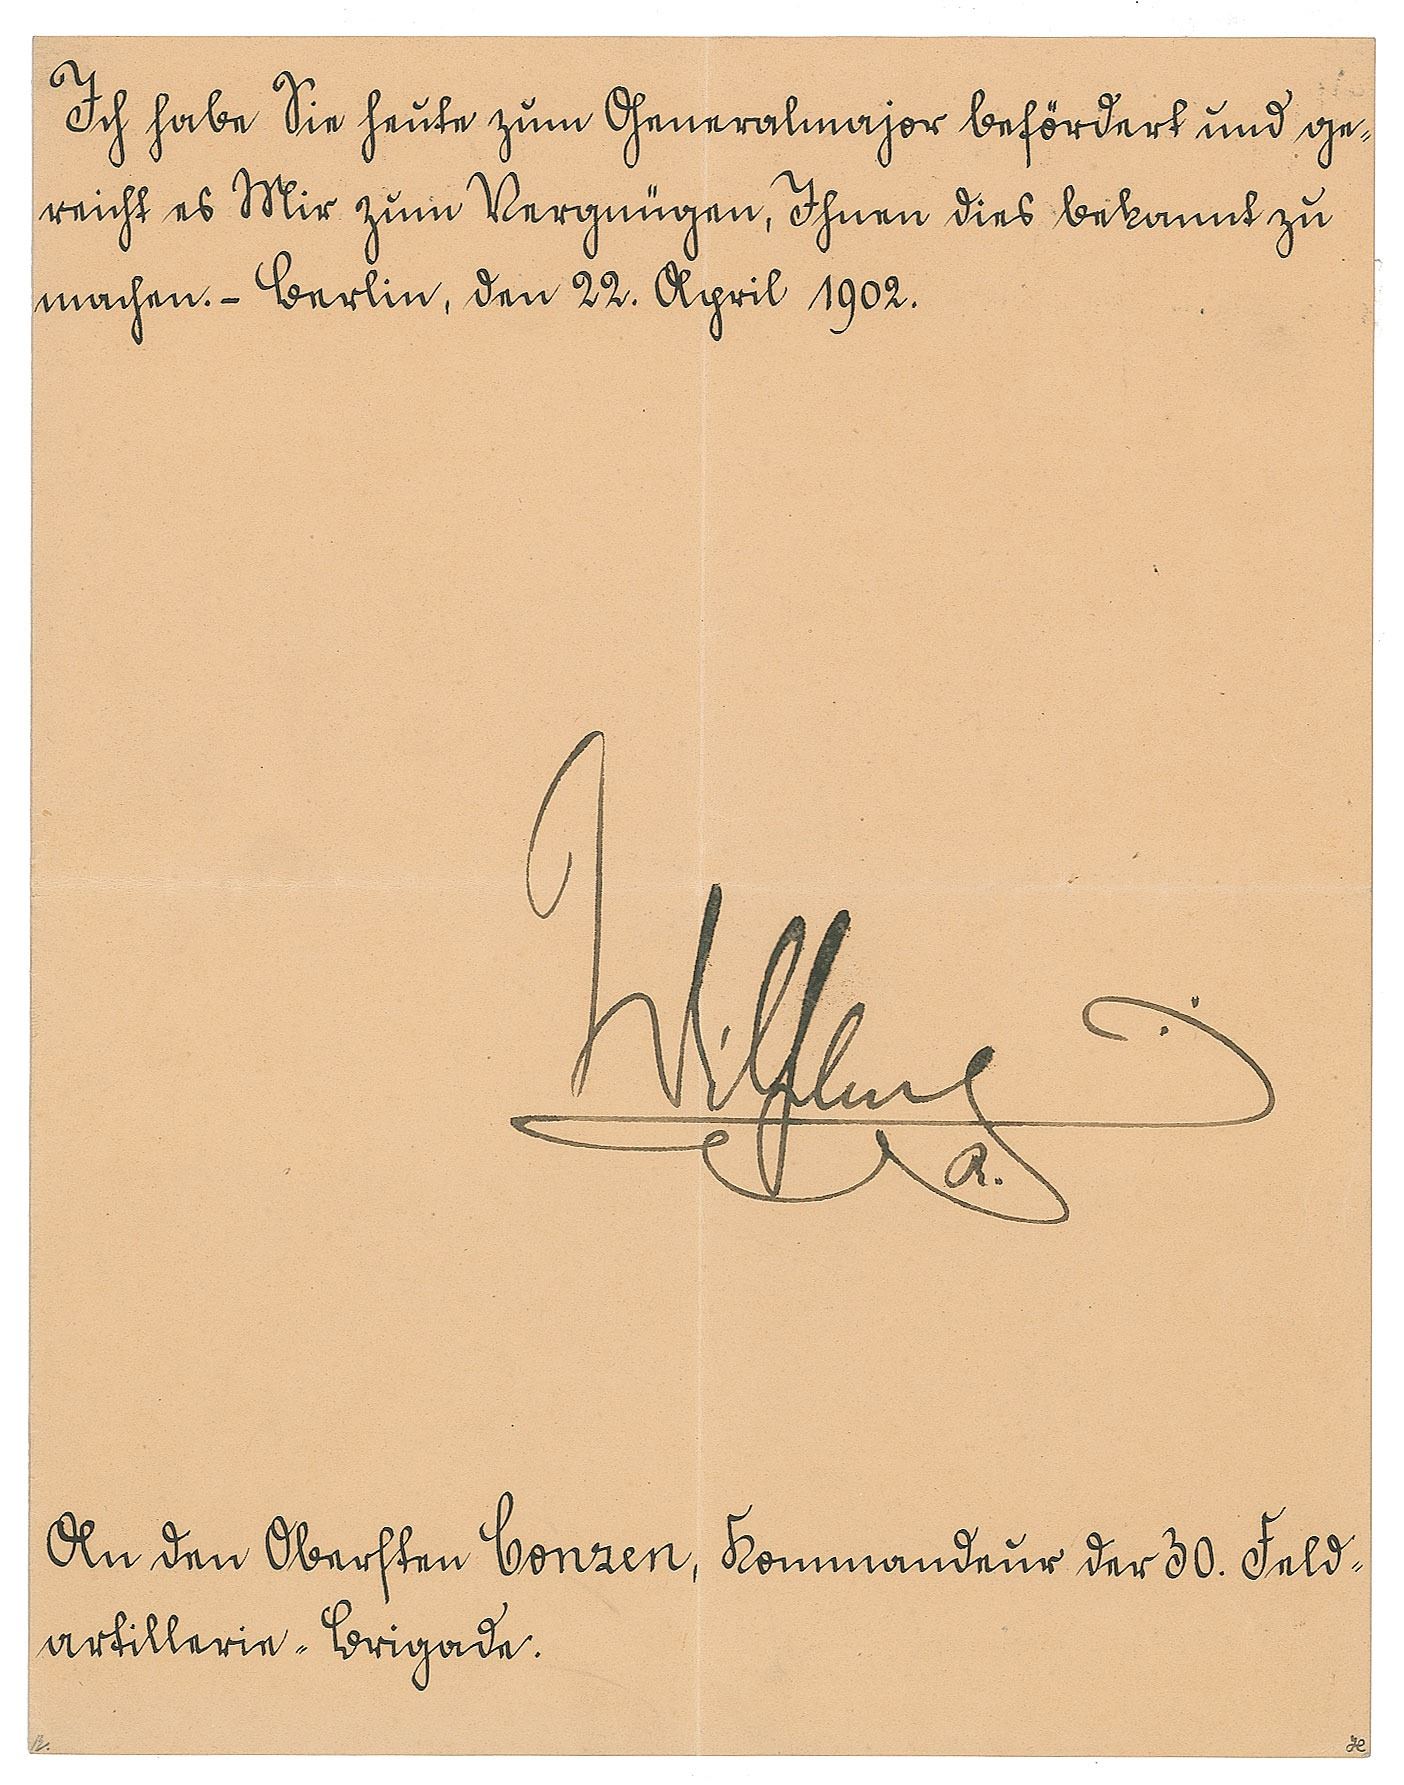 Ich habe Sie heute zum Generalmajor befördert und ge-
reicht es Mir zum Vergnügen, Ihnen dies bekannt zu
machen. – Berlin, den 22. April 1902.
Wilhelm
R.
An den Obersten Conzen, Kommandeur der 30. Feld-
artillerie-Brigade.